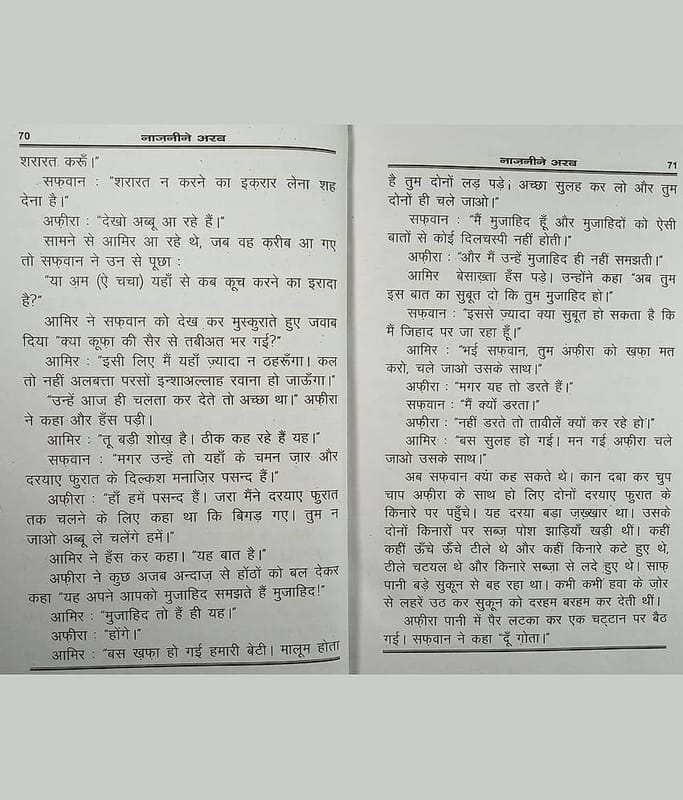 70
नाज़नीने अरब
शरारत करूँ।"
सफ़वान : "शरारत न करने का इक़रार लेना शह
देना है।"
अफ़ीरा : "देखो अब्बू आ रहे हैं।"
सामने से आमिर आ रहे थे, जब वह क़रीब आ गए
तो सफ़वान ने उन से पूछा :
"या अ़म (ऐ चचा) यहाँ से कब कूच करने का इरादा
है?"
आमिर ने सफ़वान को देख कर मुस्कुराते हुए जवाब
दिया "क्या कूफ़ा की सैर से तबीअत भर गई?"
आमिर : "इसी लिए मैं यहाँ ज़्यादा न ठहरूँगा। कल
तो नहीं अलबत्ता परसों इन्शाअल्लाह रवाना हो जाऊँगा।"
"उन्हें आज ही चलता कर देते तो अच्छा था।" अफ़ीरा
ने कहा और हँस पड़ी।
आमिर : "तू बड़ी शोख़ है। ठीक कह रहे हैं यह।"
सफ़वान : "मगर उन्हें तो यहाँ के चमन ज़ार और
दरयाए फ़ुरात के दिल्कश मनाज़िर पसन्द हैं।"
अफ़ीरा : "हाँ हमें पसन्द हैं। जरा मैंने दरयाए फ़ुरात
तक चलने के लिए कहा था कि बिगड़ गए। तुम न
जाओ अब्बू ले चलेंगे हमें।"
आमिर ने हँस कर कहा। "यह बात है।"
अफ़ीरा ने कुछ अजब अन्दाज़ से होंठों को बल देकर
कहा "यह अपने आपको मुजाहिद समझते हैं मुजाहिद!"
आमिर : "मुजाहिद तो हैं ही यह।"
अफ़ीरा : "होंगे।"
आमिर : "बस ख़फ़ा हो गई हमारी बेटी। मालूम होता
नाज़नीने अरब
71
है तुम दोनों लड़ पड़े। अच्छा सुलह कर लो और तुम
दोनों ही चले जाओ।"
सफ़वान : "मैं मुजाहिद हूँ और मुजाहिदों को ऐसी
बातों से कोई दिलचस्पी नहीं होती।"
अफ़ीरा : "और मैं उन्हें मुजाहिद ही नहीं समझती।"
आमिर बेसाख़्ता हँस पड़े। उन्होंने कहा "अब तुम
इस बात का सुबूत दो कि तुम मुजाहिद हो।"
सफ़वान : "इससे ज़्यादा क्या सुबूत हो सकता है कि
मैं जिहाद पर जा रहा हूँ।"
आमिर : "भई सफ़वान, तुम अफ़ीरा को ख़फ़ा मत
करो, चले जाओ उसके साथ।"
अफ़ीरा : "मगर यह तो डरते हैं।"
सफ़वान : "मैं क्यों डरता।"
अफ़ीरा : "नहीं डरते तो तावीलें क्यों कर रहे हो।"
आमिर : "बस सुलह हो गई। मन गई अफ़ीरा चले
जाओ उसके साथ।"
अब सफ़वान क्या कह सकते थे। कान दबा कर चुप
चाप अफ़ीरा के साथ हो लिए दोनों दरयाए फ़ुरात के
किनारे पर पहुँचे। यह दरया बड़ा ज़ख़्ख़ार था। उसके
दोनों किनारों पर सब्ज़ पोश झाड़ियाँ खड़ी थीं। कहीं
कहीं ऊँचे ऊँचे टीले थे और कहीं किनारे कटे हुए थे,
टीले चटयल थे और किनारे सब्ज़ा से लदे हुए थे। साफ़
पानी बड़े सुकून से बह रहा था। कभी कभी हवा के ज़ोर
से लहरें उठ कर सुकून को दरहम बरहम कर देती थीं।
अफ़ीरा पानी में पैर लटका कर एक चट्टान पर बैठ
गई। सफ़वान ने कहा "दूँ ग़ोता।"